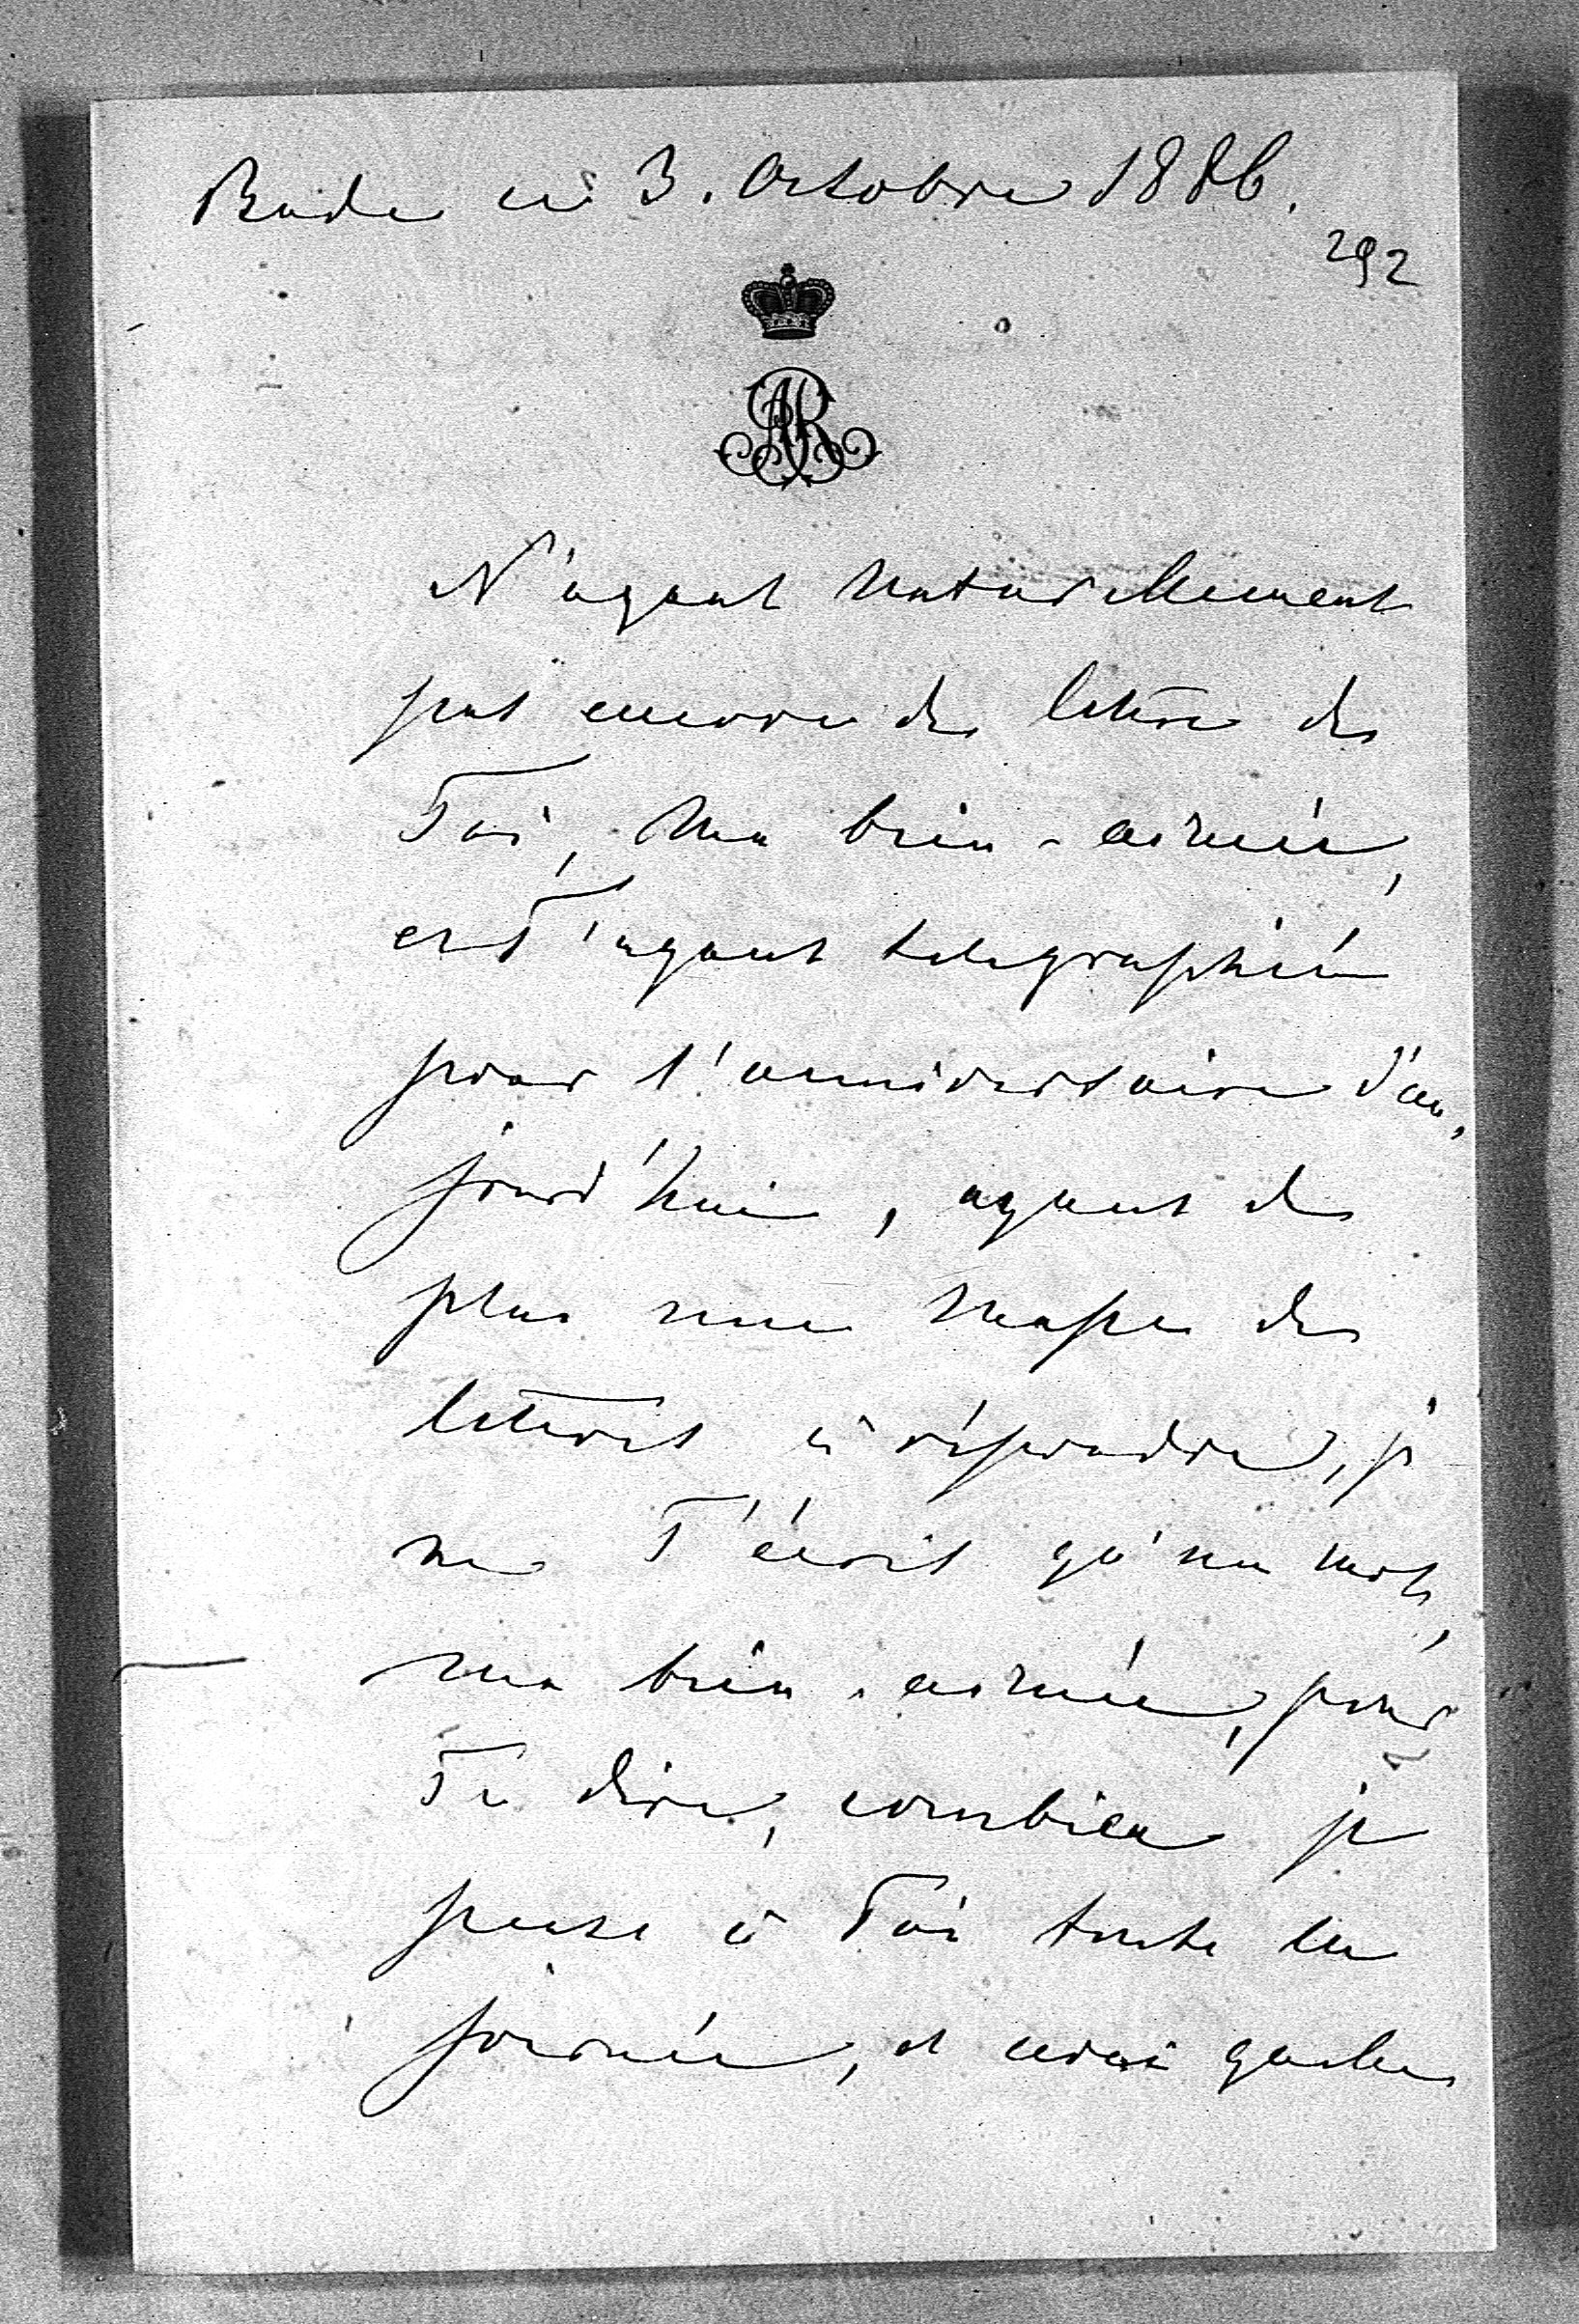 Bade ce 3. Octobre 1886.
292
AR
N'ayant naturellement
pas encore de lettre de
Toi, ma bien-aimée,
et T'ayant telegraphié
pour l'anniversaire d'au,
jourd'hui, ayant de
plus une masse de
lettres à répondre, je
ne T'écris qu'un mot,
ma bien-aimée, pour
Te dire, combien je
pense à Toi toute la
journée, et avec